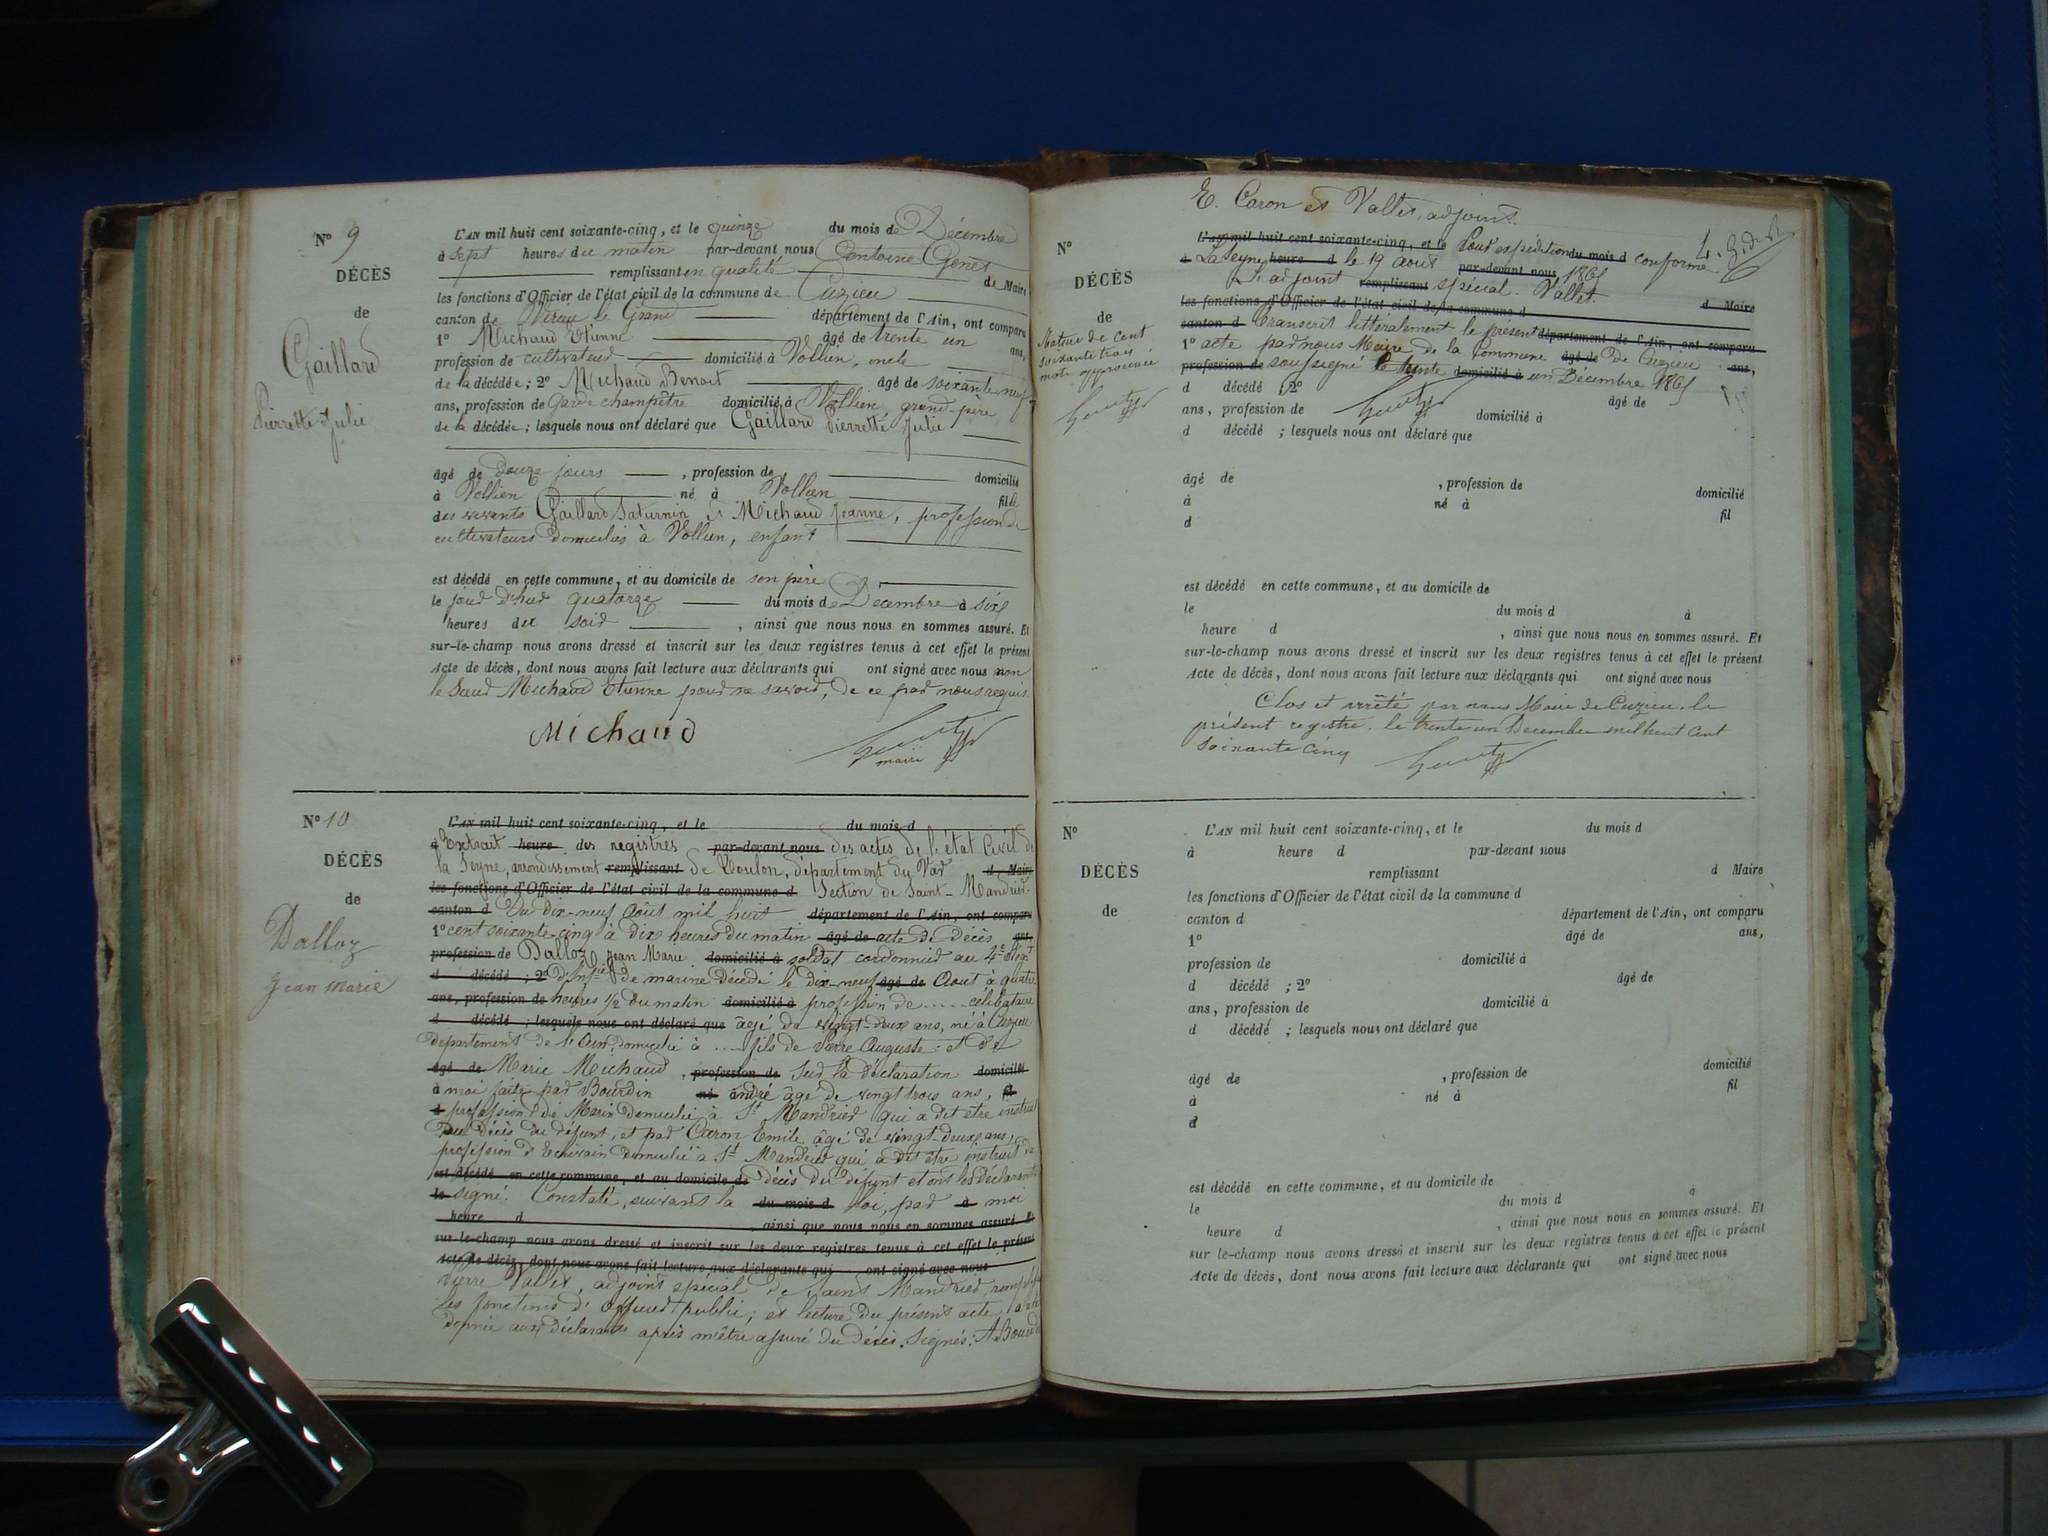 N° 9
DÉCÈS
de
Gaillard
Pierrette Julie
L'AN mil huit cent soixante-cinq, et le quinze du mois de Décembre
à sept heures du matin par-devant nous Antoine Genet
remplissant en qualité de Maire
les fonctions d'Officier de l'état civil de la commune de Cuzieu
canton de Virieu le Grand département de l'Ain, ont comparu
1° Michaud Etienne âgé de trente un ans,
profession de cultivateur domicilié à Vollien, oncle
de la décédée ; 2° Michaud Benoit âgé de soixante neuf
ans, profession de Garde champêtre domicilié à Vollien, grand-père
de la décédée ; lesquels nous ont déclaré que Gaillard Pierrette Julie
âgé de douze jours , profession de domicilié
à Vollien né à Vollien fille
des vivants Gaillard Saturnin et Michaud Jeanne, profession de
cultivateurs domiciliés à Vollien, enfant
est décédé en cette commune, et au domicile de son père
le jour d'hier quatorze du mois de Décembre à six
heures du soir , ainsi que nous nous en sommes assuré. Et
sur-le-champ nous avons dressé et inscrit sur les deux registres tenus à cet effet le présent
Acte de décès, dont nous avons fait lecture aux déclarants qui ont signé avec nous non
le Sieur Michaud Etienne pour ne savoir, de ce par nous requis.
Michaud
maire
N° 10
DÉCÈS
de
Dalloz
Jean Marie
L'AN mil huit cent soixante-cinq, et le du mois d
à Extrait heure des registres par-devant nous des actes de l'état Civil de
la Seyne, arrondissement remplissant de Toulon, département du Var d Maire
les fonctions d'Officier de l'état civil de la commune d Section de Saint-Mandrier.
canton d Du dix-neuf Août mil huit département de l'Ain, ont comparu
1° cent soixante-cinq à dix heures du matin âgé de acte de décès ans,
profession de Dalloz Jean Marie domicilié à soldat cordonnier au 4e Régt
d décédé ; 2° d'Infie de marine décédé le dix-neuf âgé de Aout à quatre
ans, profession de heures 1/2 du matin domicilié à profession de ..... célibataire
d décédé ; lesquels nous ont déclaré que âgé de vingt-deux ans, né à Cuzieu
département de l'Ain, domicilié à .... fils de Pierre Auguste et de
âgé de Marie Michaud , profession de Sur la déclaration domicilié
à moi faite par Bourdin né andré âgé de vingt trois ans, fil
d profession de Marin domicilié à St Mandrier qui a dit être instruit
du décès du défunt, et par Caron Emile âgé de vingt-deux ans,
profession d'Ecrivain domicilié à St Mandrier qui a dit être instruit du
est décédé en cette commune, et au domicile de décès du défunt et ont les déclarants
le signé. Constaté, suivant la du mois d loi, par à moi
heure d , ainsi que nous nous en sommes assuré. Et
sur-le-champ nous avons dressé et inscrit sur les deux registres tenus à cet effet le présent
Acte de décès, dont nous avons fait lecture aux déclarants qui ont signé avec nous
Pierre Vallet, adjoint spécial de Saint Mandrier, remplissant
les fonctions d'officier public, et lecture du présent acte a été
donnée aux déclarants après m'être assuré du décès. Signés: A. Bourdin
E. Caron et Vallet, adjoint.
N°
DÉCÈS
de
Rature de cent
soixante trois
mots approuvée
L'AN mil huit cent soixante-cinq, et le Pour expédition du mois d conforme
à La Seyne heure d le 19 aout par-devant nous 1865
L'adjoint remplissant spécial. Vallet. d Maire
les fonctions d'Officier de l'état civil de la commune d
canton d Transcrit littéralement le présent département de l'Ain, ont comparu
1° acte par nous Maire de la Commune âgé de de Cuzieu ans,
profession de soussigné le trente domicilié à un Décembre 1865
d décédé ; 2° âgé de
ans, profession de domicilié à
d décédé ; lesquels nous ont déclaré que
âgé de , profession de domicilié
à né à fil
d
est décédé en cette commune, et au domicile de
le du mois d à
heure d , ainsi que nous nous en sommes assuré. Et
sur-le-champ nous avons dressé et inscrit sur les deux registres tenus à cet effet le présent
Acte de décès, dont nous avons fait lecture aux déclarants qui ont signé avec nous
Clos et arrêté par nous Maire de Cuzieu, le
présent registre, le trente un Decembre mil huit cent
soixante cinq
N°
DÉCÈS
de
L'AN mil huit cent soixante-cinq, et le du mois d
à heure d par-devant nous
remplissant d Maire
les fonctions d'Officier de l'état civil de la commune d
canton d département de l'Ain, ont comparu
1° âgé de ans,
profession de domicilié à
d décédé ; 2° âgé de
ans, profession de domicilié à
d décédé ; lesquels nous ont déclaré que
âgé de , profession de domicilié
à né à fil
d
est décédé en cette commune, et au domicile de
le du mois d à
heure d , ainsi que nous nous en sommes assuré. Et
sur le-champ nous avons dressé et inscrit sur les deux registres tenus à cet effet le présent
Acte de décès, dont nous avons fait lecture aux déclarants qui ont signé avec nous